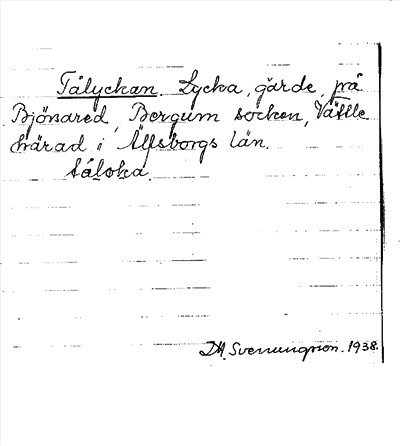 Tålyckan. Lycka, gärde, på
Bjönared, Bergum socken, Vättle
härad i Älfsborgs län.
tåloka.
D.A. Svenungsson. 1938.